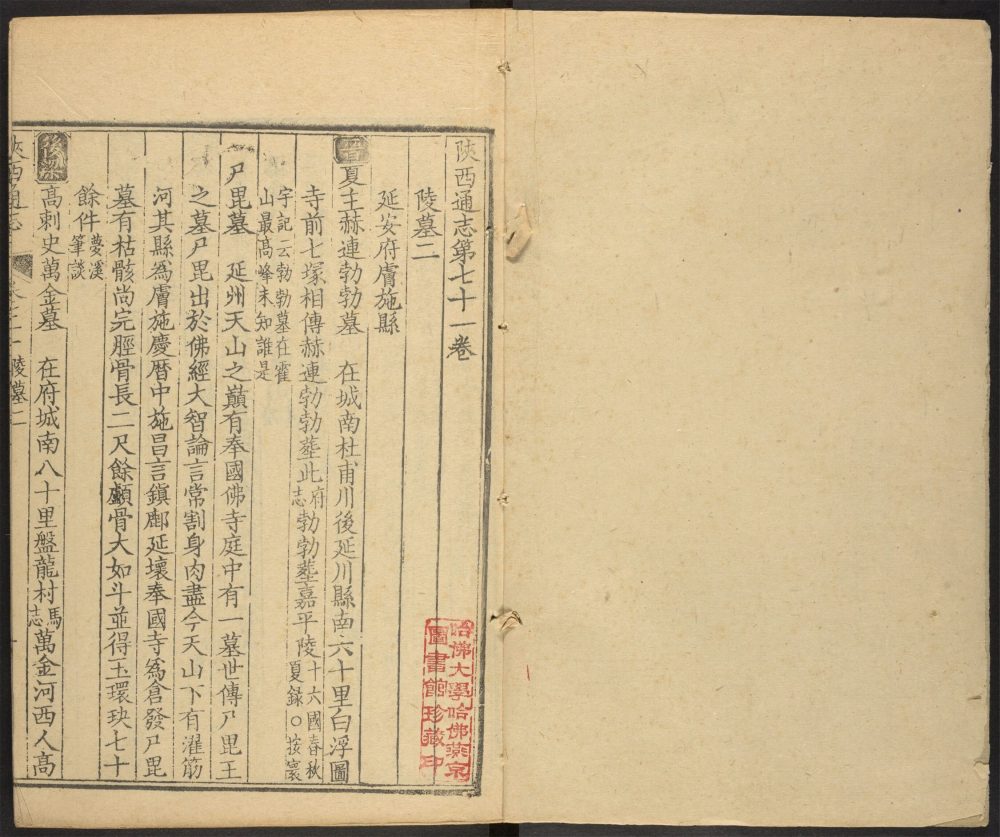 陝西通志第七十一卷
陵墓二
延安府膚施縣
晉夏主赫連勃勃墓 在城南杜甫川後延川縣南六十里白浮圖
寺前七塚相傳赫連勃勃塟此府志勃勃塟嘉平陵十六國春秋夏錄○按寰
宇記云勃勃墓在霍山最高峰未知誰是
尸毘墓 延州天山之巔有奉國佛寺庭中有一墓世傳尸毘王
之墓尸毘出於佛經大智論言常割身肉盡今天山下有濯筋
河其縣為膚施慶曆中施昌言鎮鄜延壞奉國寺為倉發尸毘
墓有枯骸尚完脛骨長二尺餘顱骨大如斗並得玉環玦七十
餘件夢溪筆談
後梁高刺史萬金墓 在府城南八十里盤龍村馬志萬金河西人高
陝西通志 陵墓二
哈佛大學哈佛燕京
圖書館珍藏印